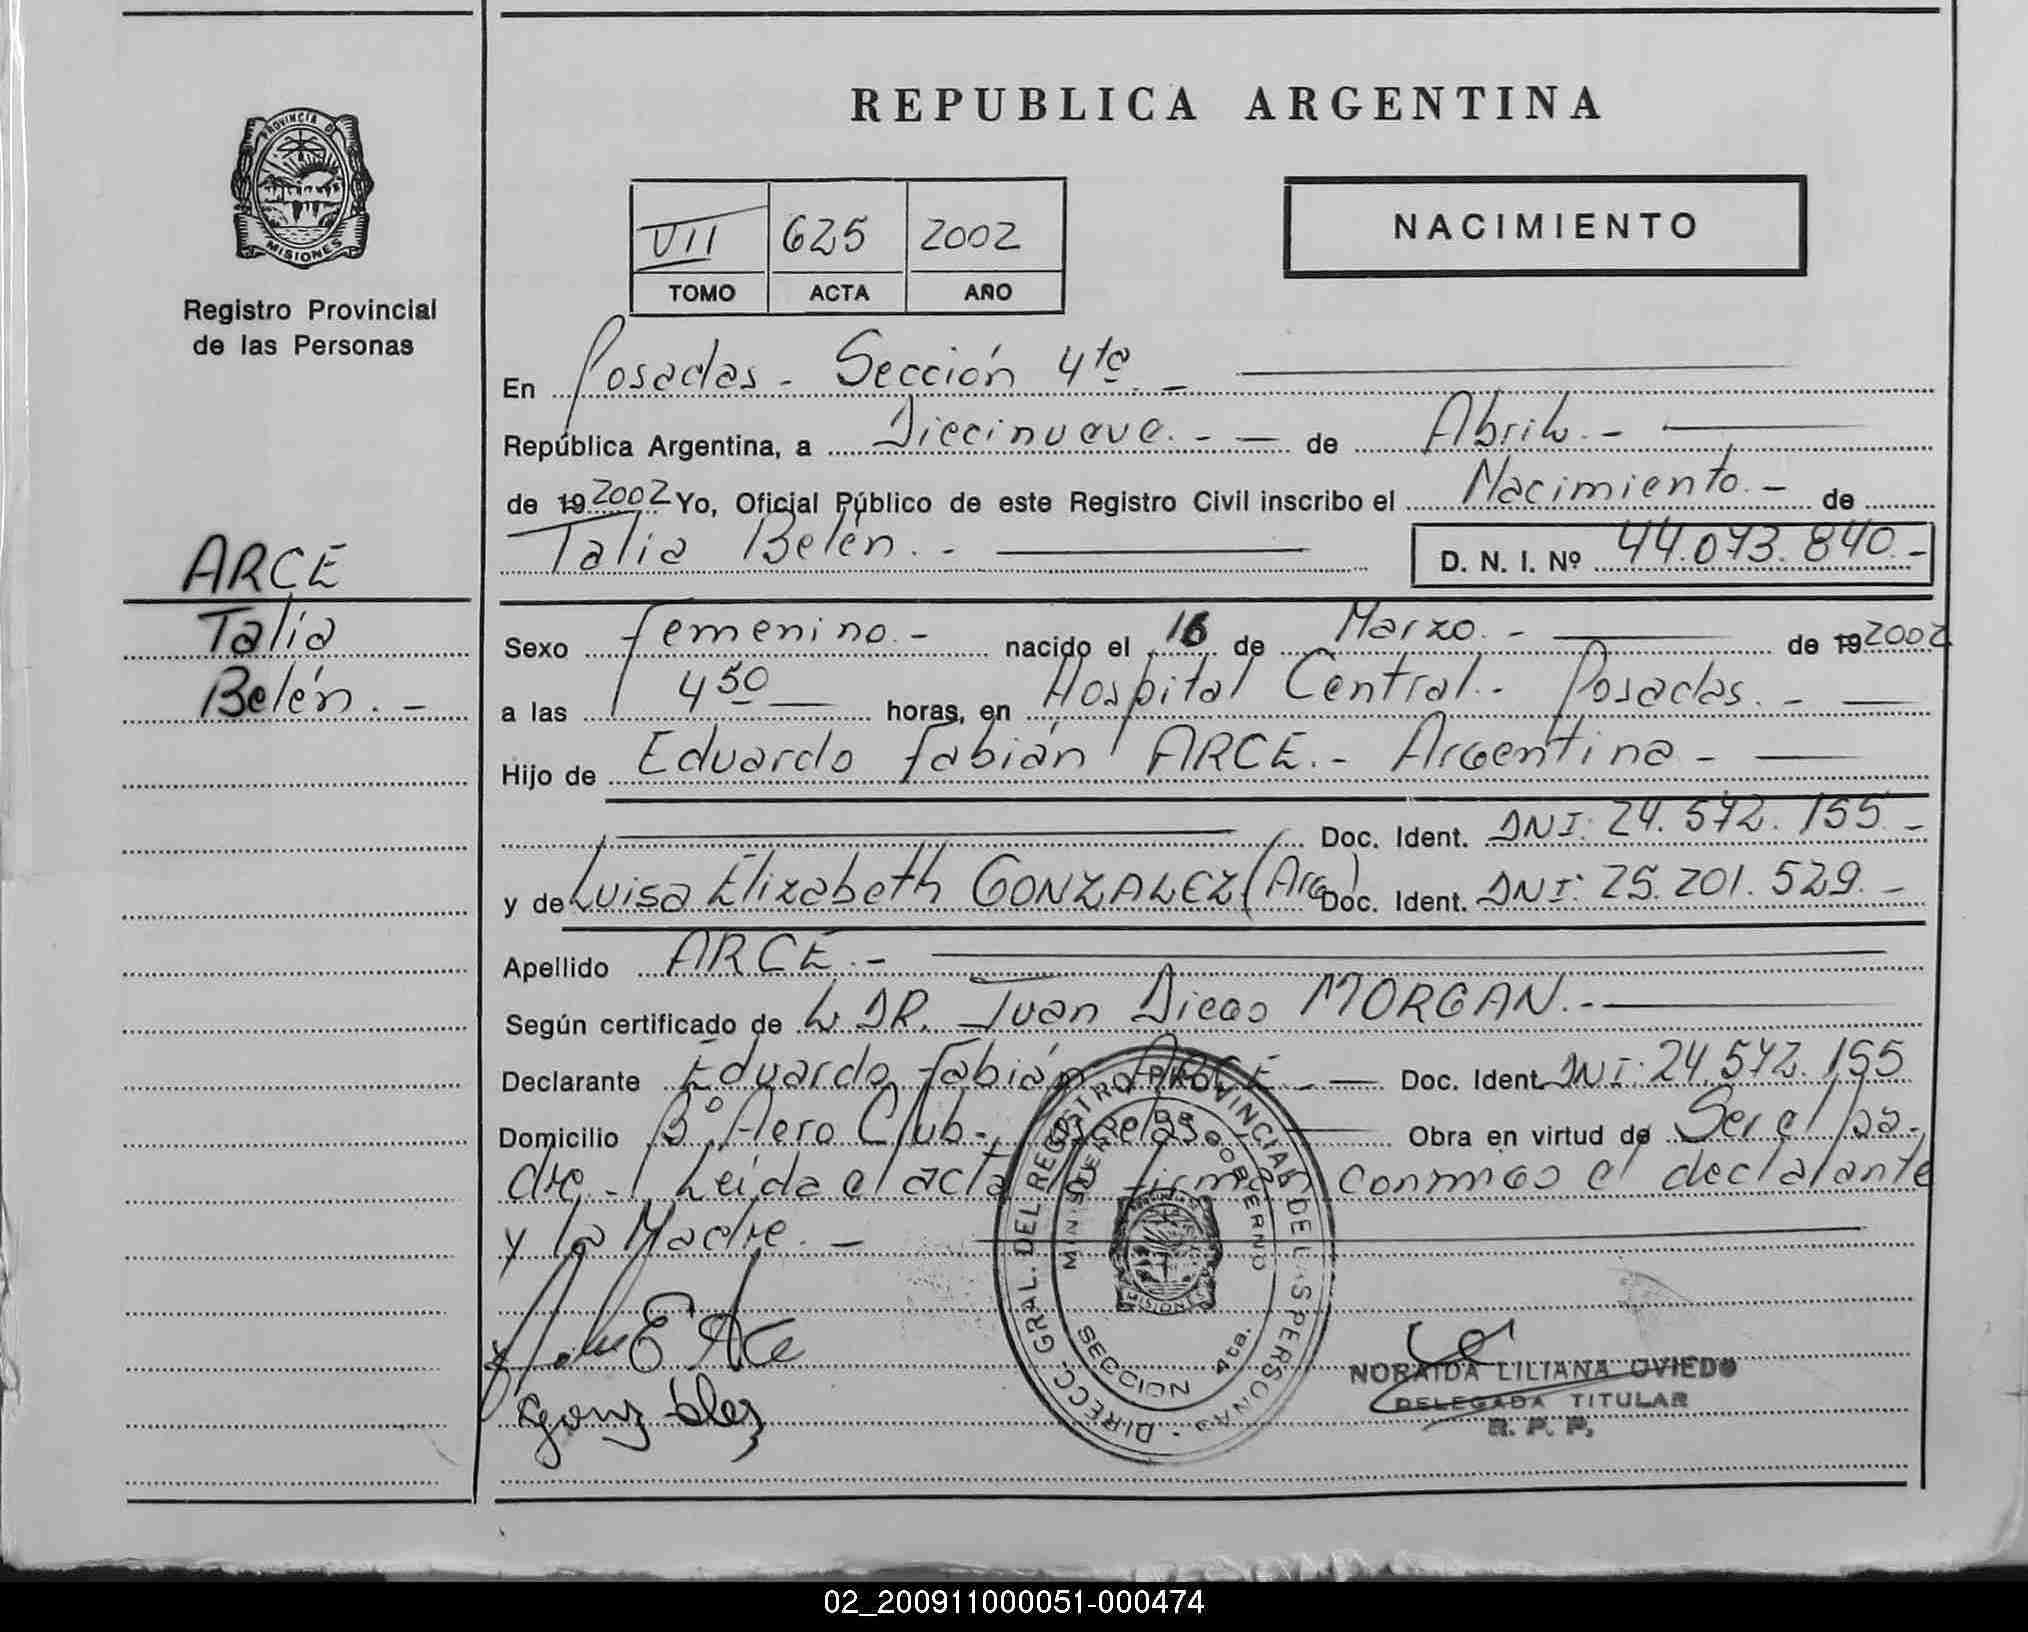 REPUBLICA ARGENTINA
PROVINCIA D
MISIONES
Registro Provincial
de las Personas
VII 625 2002
TOMO ACTA AÑO
NACIMIENTO
ARCE
Talia
Belén.-
En Posadas - Sección 4ta.-
República Argentina, a Diecinueve.- de Abril.-
de 19 2002 Yo, Oficial Público de este Registro Civil inscribo el Nacimiento.- de
Talia Belén.- D. N. I. Nº 44.073.840.-
Sexo femenino.- nacido el 16 de Marzo.- de 19 2002
a las 4 50 horas, en Hospital Central.- Posadas.-
Hijo de Eduardo Fabián ARCE.- Argentina -
Doc. Ident. DNI: 24.572.155.-
y de Luisa Elizabeth GONZALEZ (Arg) Doc. Ident. DNI: 25.201.529.-
Apellido ARCE.-
Según certificado de L DR. Juan Diego MORGAN.-
Declarante Eduardo Fabián ARCE - Doc. Ident. DNI: 24.572.155
Domicilio Bº Aero Club.- Obra en virtud de Ser el pa-
dre.- Leida el acta la firman conmigo el declarante
y la Madre.-
E Arce
Gonzalez
DIRECC. GRAL. DEL REGISTRO PROVINCIAL DE LAS PERSONAS
MINISTERIO DE GOBIERNO
MISIONES
SECCION 4ta.
NORAIDA LILIANA OVIEDO
DELEGADA TITULAR
R. P. P.
02_200911000051-000474